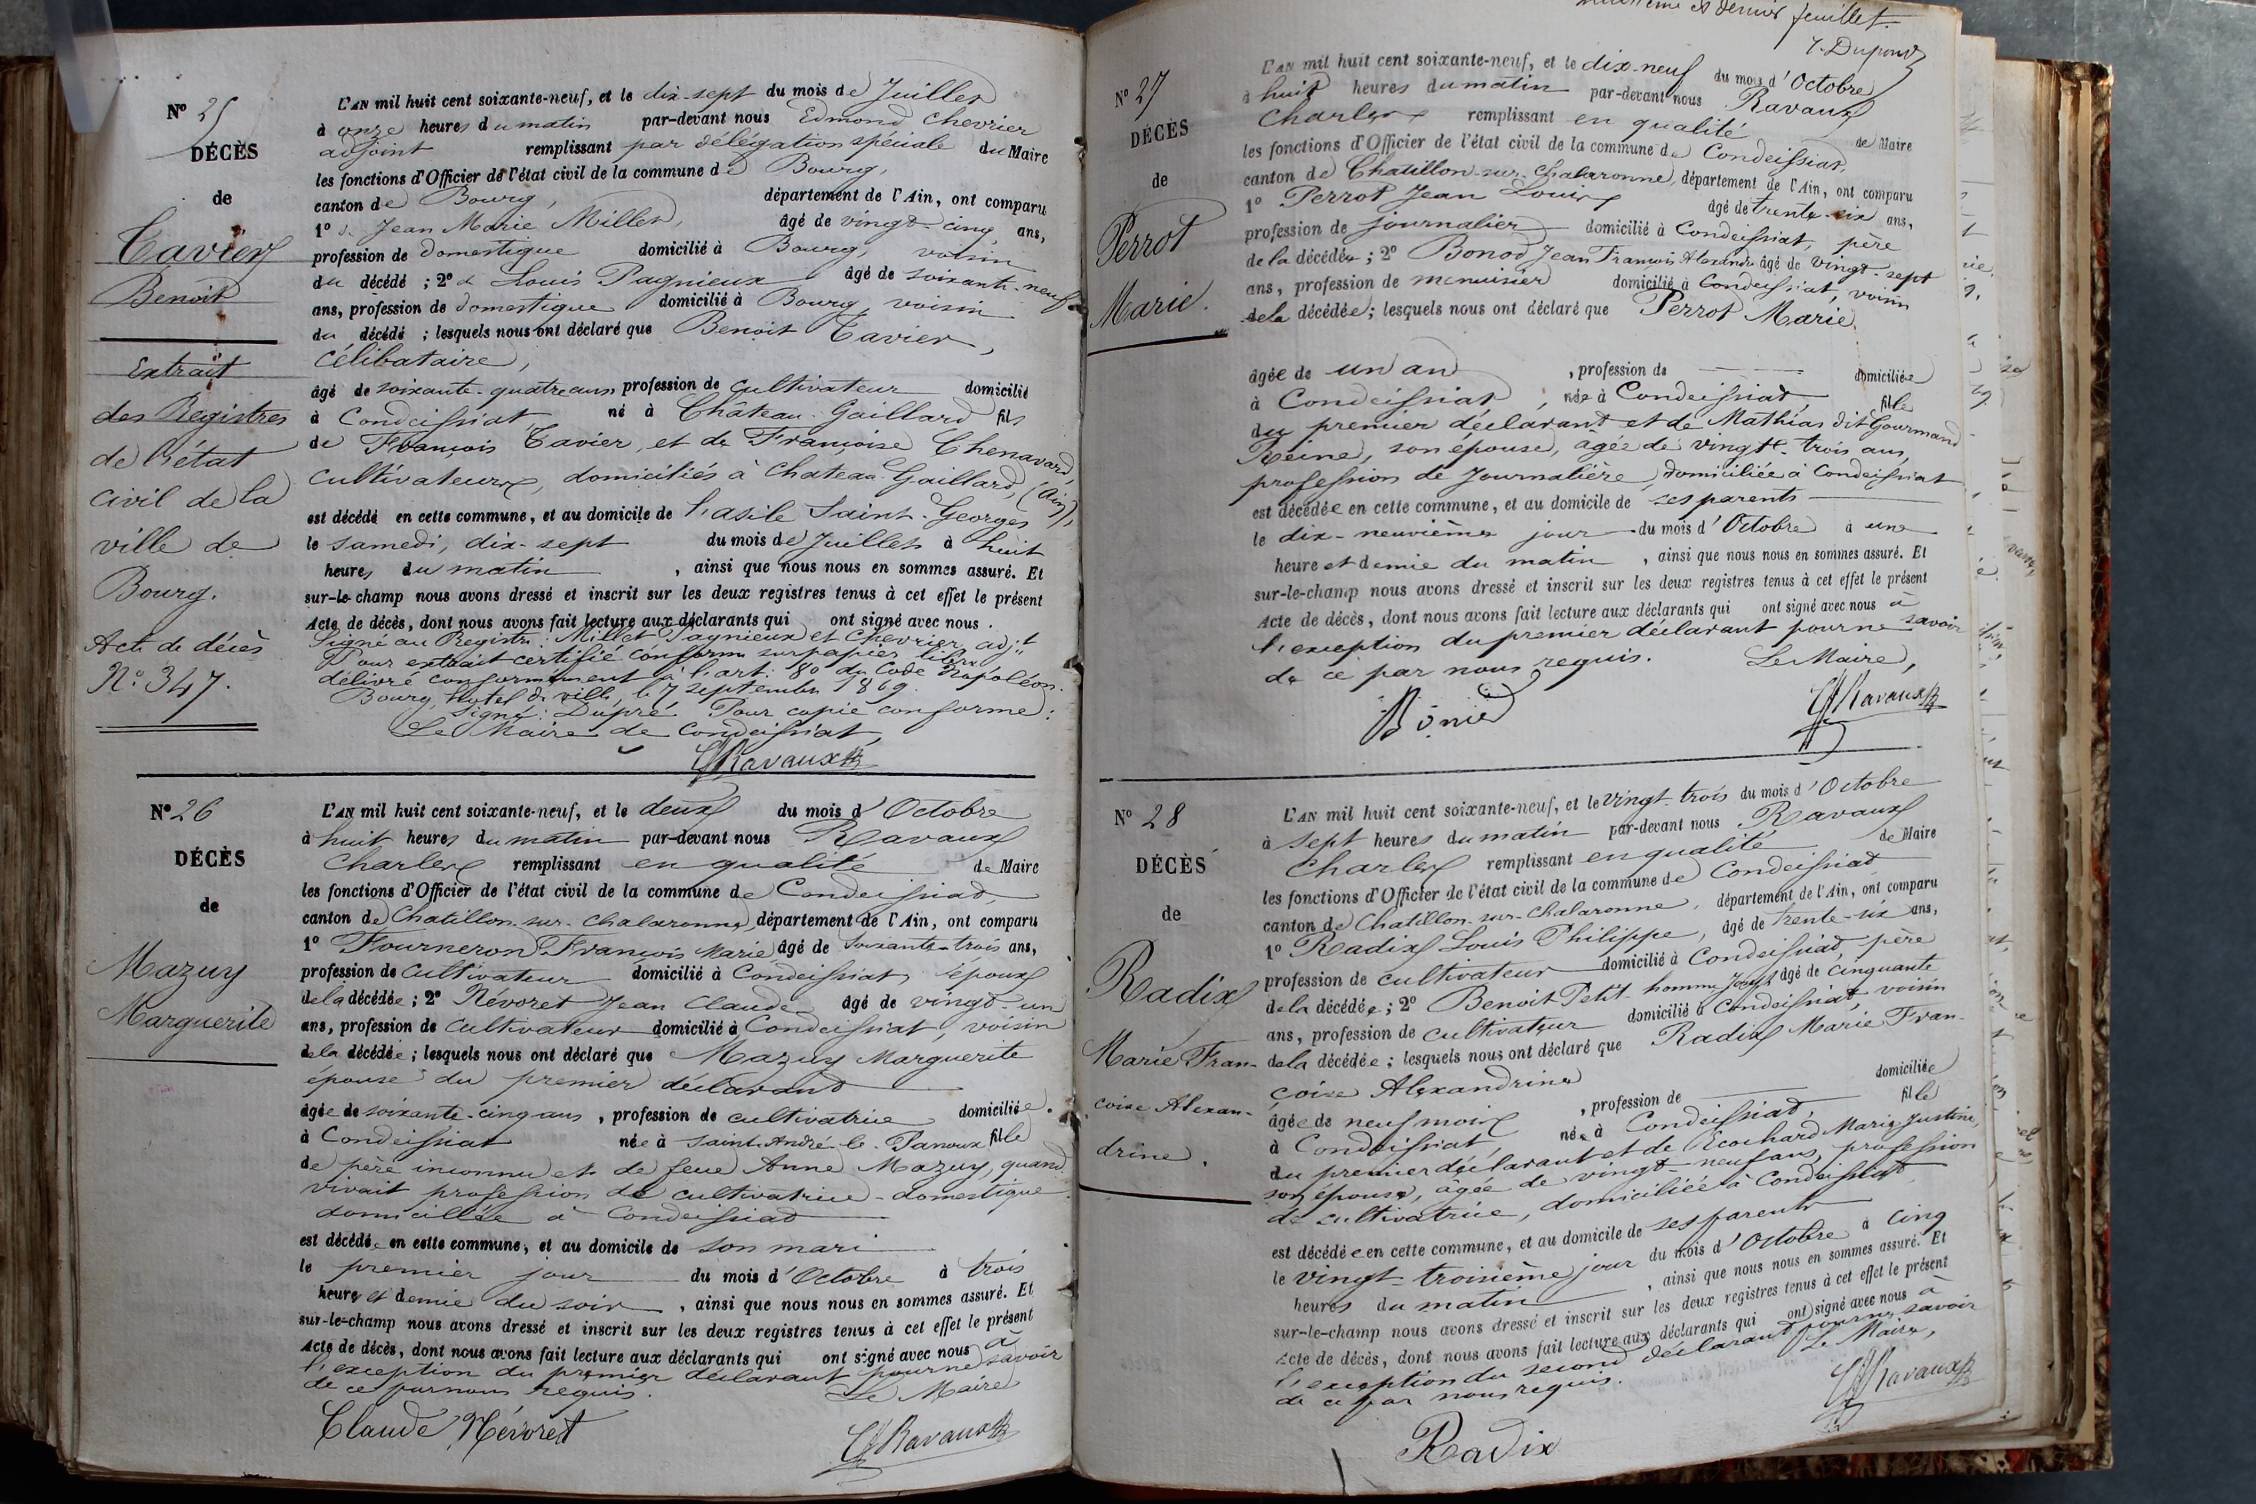 N° 25
DÉCÈS
de
Tavier
Benoit
Extrait
des Registres
de l'état
civil de la
ville de
Bourg.
Acte de décès
N° 347.
L'AN mil huit cent soixante-neuf, et le dix-sept du mois de Juillet
à onze heures du matin par-devant nous Edmond Chevrier
adjoint remplissant par délégation spéciale du Maire
les fonctions d'Officier de l'état civil de la commune de Bourg,
canton de Bourg, département de l'Ain, ont comparu
1° Jean Marie Millet, âgé de vingt-cinq ans,
profession de domestique domicilié à Bourg, voisin
du décédé ; 2° Louis Pagnieux âgé de soixante-neuf
ans, profession de domestique domicilié à Bourg voisin
du décédé ; lesquels nous ont déclaré que Benoit Tavier,
célibataire,
âgé de soixante-quatre ans profession de cultivateur domicilié
à Condeissiat, né à Château-Gaillard fils
de François Tavier, et de Françoise Chenavard,
cultivateurs, domiciliés à Chateau-Gaillard, (Ain),
est décédé en cette commune, et au domicile de l'asile Saint-Georges
le samedi, dix-sept du mois de Juillet à huit
heures du matin, ainsi que nous nous en sommes assuré. Et
sur-le-champ nous avons dressé et inscrit sur les deux registres tenus à cet effet le présent
Acte de décès, dont nous avons fait lecture aux déclarants qui ont signé avec nous.
Signé au Registre : Millet Pagnieux et Chevrier, adjt
Pour extrait certifié conforme sur papier libre
délivré conformément à l'art. 80 du Code Napoléon.
Bourg, hotel de ville, le 7 septembre 1869.
Signé : Dupré. Pour copie conforme :
Le Maire de Condeissiat,
Ravaux
N° 26
DÉCÈS
de
Mazuy
Marguerite
L'AN mil huit cent soixante-neuf, et le deux du mois d'Octobre
à huit heures du matin par-devant nous Ravaux
Charles remplissant en qualité de Maire
les fonctions d'Officier de l'état civil de la commune de Condeissiat,
canton de Chatillon-sur-Chalaronne, département de l'Ain, ont comparu
1° Fourneron François Marie âgé de soixante-trois ans,
profession de cultivateur domicilié à Condeissiat, époux
de la décédée ; 2° Névoret Jean Claude âgé de vingt-un
ans, profession de cultivateur domicilié à Condeissiat, voisin
de la décédée ; lesquels nous ont déclaré que Mazuy Marguerite
épouse du premier déclarant
âgée de soixante-cinq ans, profession de cultivatrice domiciliée
à Condeissiat née à Saint-André-le-Panoux fille
de père inconnu et de feue Anne Mazuy, quand
vivait profession de cultivatrice-domestique
domiciliée à Condeissiat
est décédée en cette commune, et au domicile de son mari
le premier jour du mois d'Octobre à trois
heures et demie du soir, ainsi que nous nous en sommes assuré. Et
sur-le-champ nous avons dressé et inscrit sur les deux registres tenus à cet effet le présent
Acte de décès, dont nous avons fait lecture aux déclarants qui ont signé avec nous à
l'exception du premier déclarant pour ne savoir
de ce par nous requis. Le Maire
Claude Névoret Ravaux
et dernier feuillet.
Dupont
N° 27
DÉCÈS
de
Perrot
Marie.
L'AN mil huit cent soixante-neuf, et le dix-neuf du mois d'Octobre
à huit heures du matin par-devant nous Ravaux
Charles remplissant en qualité de Maire
les fonctions d'Officier de l'état civil de la commune de Condeissiat,
canton de Chatillon-sur-Chalaronne, département de l'Ain, ont comparu
1° Perrot Jean Louis âgé de trente-six ans,
profession de journalier domicilié à Condeissiat, père
de la décédée ; 2° Bonod Jean François Alexandre âgé de vingt-sept
ans, profession de menuisier domicilié à Condeissiat, voisin
de la décédée ; lesquels nous ont déclaré que Perrot Marie.
âgée de un an, profession de domiciliée
à Condeissiat, née à Condeissiat, fille
du premier déclarant et de Mathias dit Gourmand
Reine, son épouse, âgée de vingt-trois ans,
profession de Journalière, domiciliée à Condeissiat
est décédée en cette commune, et au domicile de ses parents
le dix-neuvième jour du mois d'Octobre à une
heure et demie du matin, ainsi que nous nous en sommes assuré. Et
sur-le-champ nous avons dressé et inscrit sur les deux registres tenus à cet effet le présent
Acte de décès, dont nous avons fait lecture aux déclarants qui ont signé avec nous à
l'exception du premier déclarant pour ne savoir
de ce par nous requis. Le Maire,
Ravaux
N° 28
DÉCÈS
de
Radix
Marie Fran-
çoise Alexan-
drine.
L'AN mil huit cent soixante-neuf, et le vingt-trois du mois d'Octobre
à sept heures du matin par-devant nous Ravaux
Charles remplissant en qualité de Maire
les fonctions d'Officier de l'état civil de la commune de Condeissiat
canton de Chatillon-sur-Chalaronne, département de l'Ain, ont comparu
1° Radix Louis Philippe, âgé de trente-six ans,
profession de cultivateur domicilié à Condeissiat, père
de la décédée ; 2° Benoit Petit-homme Joseph âgé de cinquante
ans, profession de cultivateur domicilié à Condeissiat, voisin
de la décédée ; lesquels nous ont déclaré que Radix Marie Fran-
çoise Alexandrine
âgée de neuf mois, profession de domiciliée
à Condeissiat, née à Condeissiat, fille
du premier déclarant et de Ecochard Marie Justine,
son épouse, âgée de vingt-neuf ans, profession
de cultivatrice, domiciliée à Condeissiat
est décédée en cette commune, et au domicile de ses parents
le vingt-troisième jour du mois d'Octobre à cinq
heures du matin, ainsi que nous nous en sommes assuré. Et
sur-le-champ nous avons dressé et inscrit sur les deux registres tenus à cet effet le présent
Acte de décès, dont nous avons fait lecture aux déclarants qui ont signé avec nous à
l'exception du second déclarant pour ne savoir
de ce par nous requis. Le Maire,
Ravaux
Radix